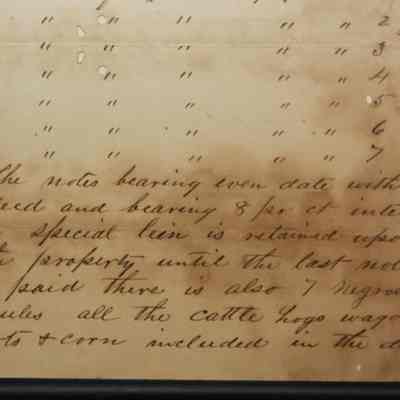 " " " " " 2
" " " " " 3
" " " " " 4
" " " " " 5
" " " " " 6
" " " " " 7
The notes bearing even date with
deed and bearing 8 pr ct inte
special lien is retained upo
property until the last not
paid there is also 7 negroe
ules all the cattle hogs wago
ts & corn included in the d